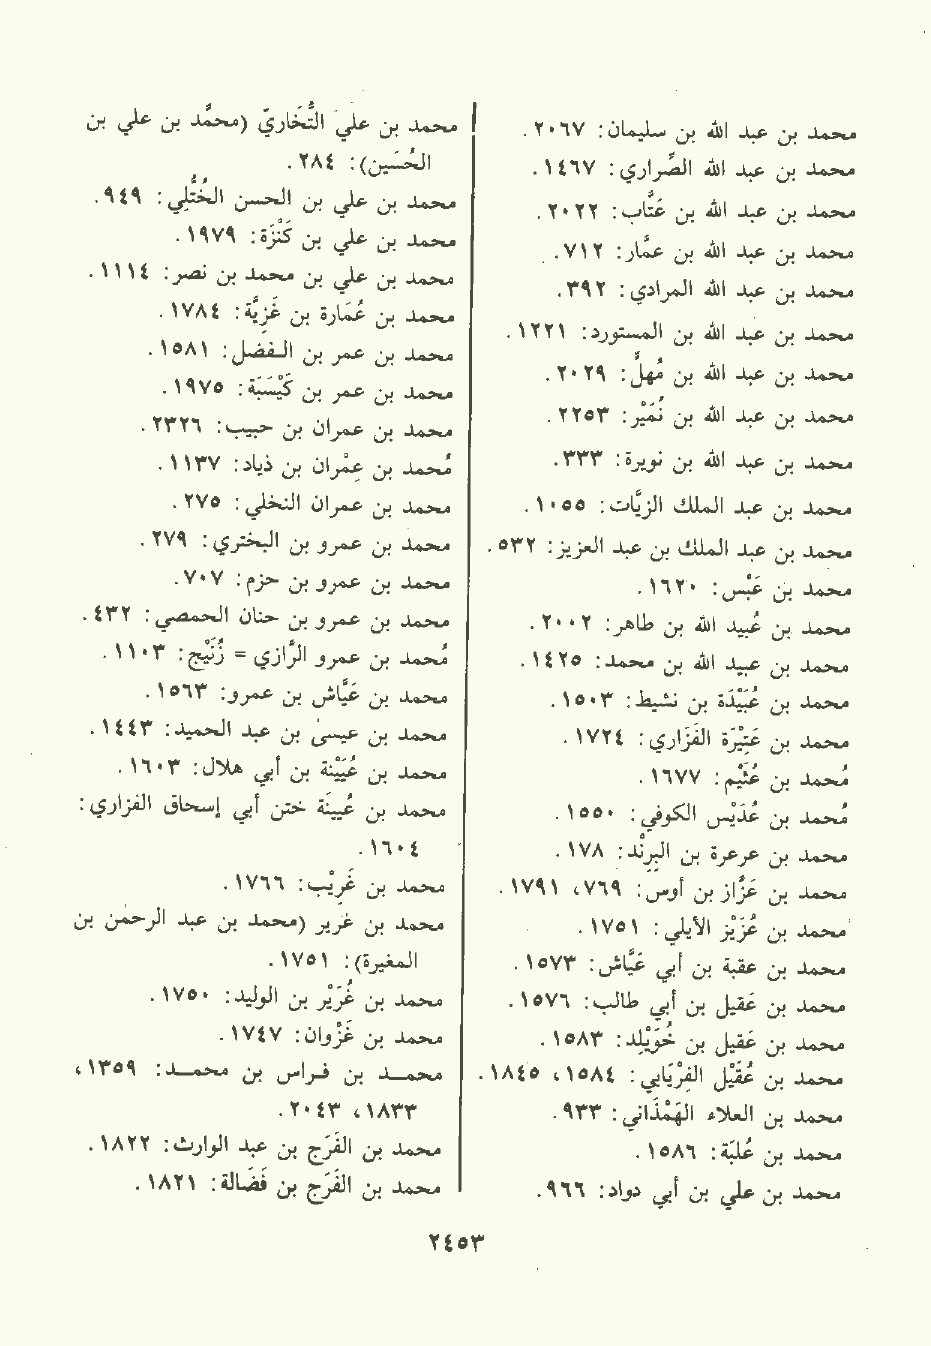 محمد بن عبد الله بن سليمان: ٢٠٦٧.
محمد بن عبد الله الصِّراري: ١٤٦٧.
محمد بن عبد الله بن عَتَّاب: ٢٠٢٢.
محمد بن عبد الله بن عمَّار: ٧١٢.
محمد بن عبد الله المرادي: ٣٩٢.
محمد بن عبد الله بن المستورد: ١٢٢١.
محمد بن عبد الله بن مُهلَّ: ٢٠٢٩.
محمد بن عبد الله بن نُمَيْر: ٢٢٥٣.
محمد بن عبد الله بن نويرة: ٣٣٣.
محمد بن عبد الملك الزيَّات: ١٠٥٥.
محمد بن عبد الملك بن عبد العزيز: ٥٣٢.
محمد بن عَبْس: ١٦٢٠.
محمد بن عُبيد الله بن طاهر: ٢٠٠٢.
محمد بن عبيد الله بن محمد: ١٤٢٥.
محمد بن عُبَيْدَة بن نشيط: ١٥٠٣.
محمد بن عَتِيْرَة الفَزَاري: ١٧٢٤.
مُحمد بن عُثَيْم: ١٦٧٧.
مُحمد بن عُدَيْس الكوفي: ١٥٥٠.
محمد بن عرعرة بن البِرِنْد: ١٧٨.
محمد بن عَزَّاز بن أوس: ٧٦٩، ١٧٩١.
محمد بن عُزَيْز الأيلي: ١٧٥١.
محمد بن عقبة بن أبي عَيَّاش: ١٥٧٣.
محمد بن عَقيل بن أبي طالب: ١٥٧٦.
محمد بن عَقيل بن خُوَيْلِد: ١٥٨٣.
محمد بن عُقَيْل الفِرْيَابي: ١٥٨٤، ١٨٤٥.
محمد بن العلاء الهَمْذَاني: ٩٣٣.
محمد بن عُلَبَة: ١٥٨٦.
محمد بن علي بن أبي دواد: ٩٦٦.
محمد بن علي التُّخَاريّ (محمَّد بن علي بن
الحُسَين): ٢٨٤.
محمد بن علي بن الحسن الخُتُّلِي: ٩٤٩.
محمد بن علي بن كَنْزَة: ١٩٧٩.
محمد بن علي بن محمد بن نصر: ١١١٤.
محمد بن عُمَارة بن غَزِيَّة: ١٧٨٤.
محمد بن عمر بن الفضل: ١٥٨١.
محمد بن عمر بن كَيْسَبَة: ١٩٧٥.
محمد بن عمران بن حبيب: ٢٣٢٦.
مُحمد بن عِمْران بن ذياد: ١١٣٧.
محمد بن عمران النخلي: ٢٧٥.
محمد بن عمرو بن البختري: ٢٧٩.
محمد بن عمرو بن حزم: ٧٠٧.
محمد بن عمرو بن حنان الحمصي: ٤٣٢.
مُحمد بن عمرو الرَّازي = زُنَيْج: ١١٠٣.
محمد بن عَيَّاش بن عمرو: ١٥٦٣.
محمد بن عيسى بن عبد الحميد: ١٤٤٣.
محمد بن عُيَيْنة بن أبي هلال: ١٦٠٣.
محمد بن عُيينَة ختن أبي إسحاق الفزاري:
١٦٠٤.
محمد بن غَرِيْب: ١٧٦٦.
محمد بن غرير (محمد بن عبد الرحمٰن بن
المغيرة): ١٧٥١.
محمد بن غُرَيْر بن الوليد: ١٧٥٠.
محمد بن غَزْوان: ١٧٤٧.
محمـــد بن فـراس بن محمـــد: ١٣٥٩،
١٨٣٣، ٢٠٤٣.
محمد بن الفَرَج بن عبد الوارث: ١٨٢٢.
محمد بن الفَرَج بن فَضَالة: ١٨٢١.
٢٤٥٣